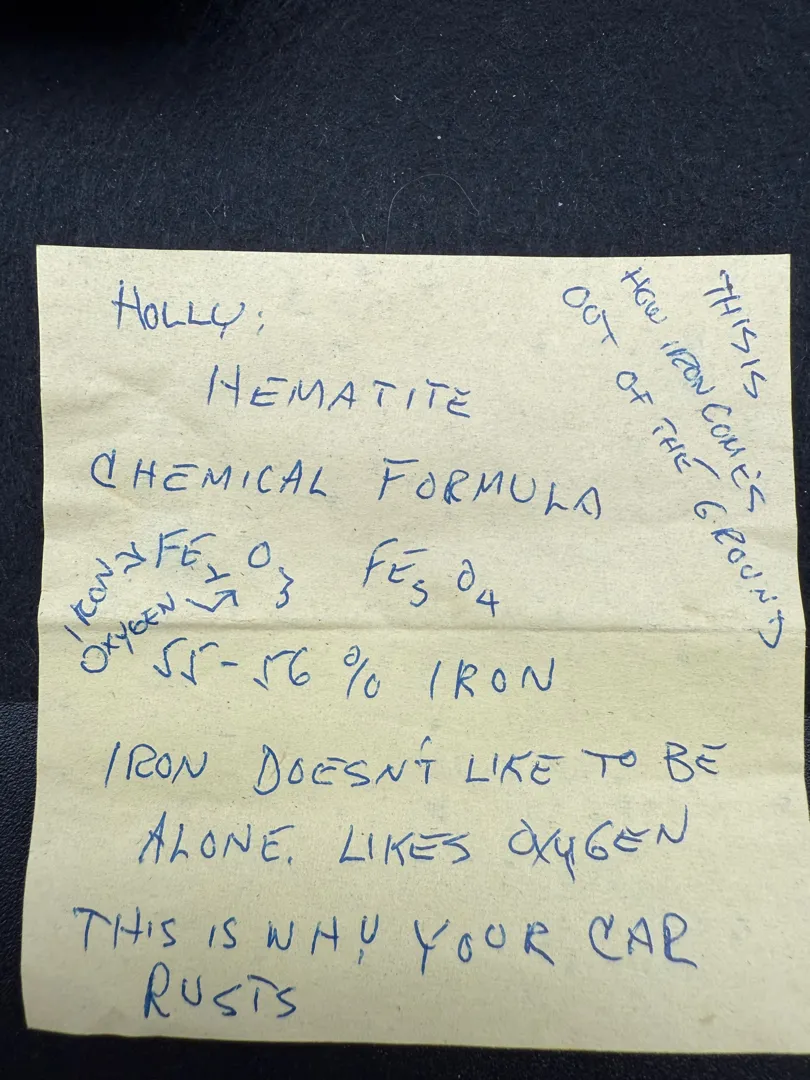 HOLLY:
HEMATITE
CHEMICAL FORMULA
IRON → FE2 O3 FE3 O4
OXYGEN →
55-56 % IRON
IRON DOESN'T LIKE TO BE
ALONE. LIKES OXYGEN
THIS IS WHY YOUR CAR
RUSTS
THIS IS
HOW IRON COMES
OUT OF THE GROUND